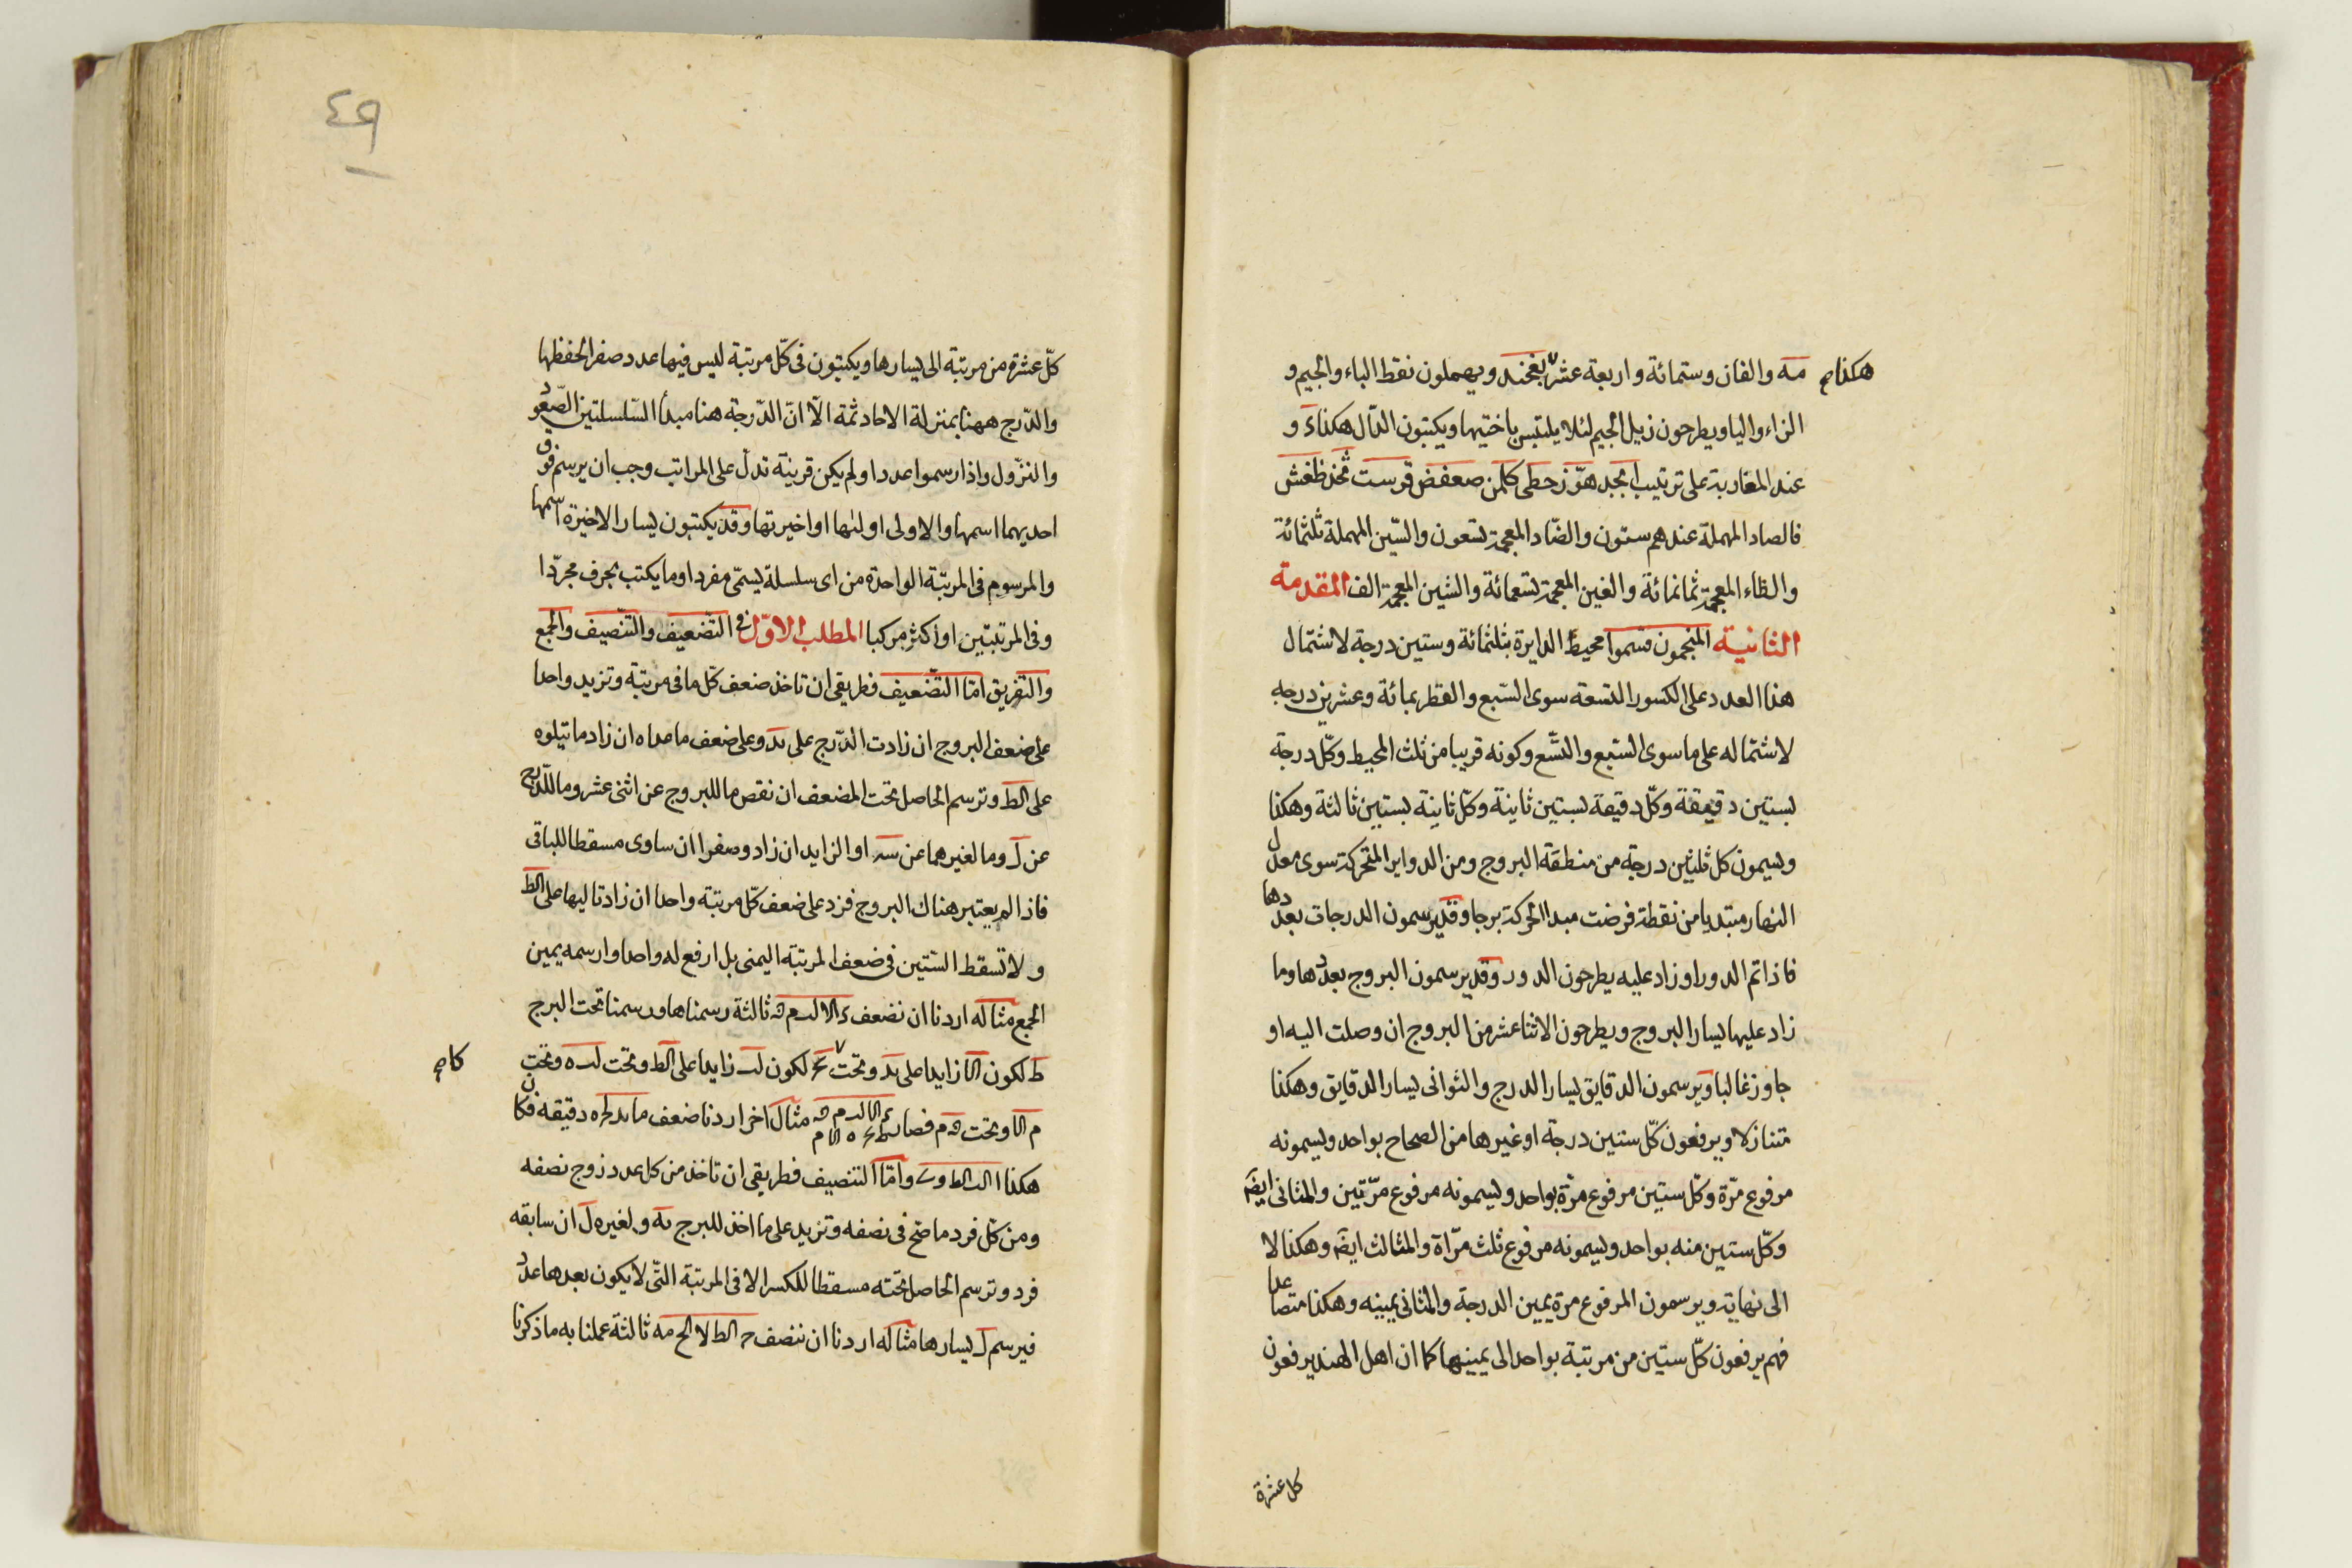 مه والفان وستمائة واربعة عشر بغخند ويهملون نقط الباء والجيم و
هكذا صح
الزاء والياء ويطرحون ذيل الجيم لئلا يلتبس باختيها ويكتبون الدال هكذا ء و
عند المغاربة على ترتيب ابجد هوّز حطى كلمن صعفض قرست ثخذ ظغش
فالصاد المهملة عندهم ستون والضّاد المعجمة تسعون والسّين المهملة ثلثمائة
والظاء المعجمة ثمانمائة والغين المعجمة تسعمائة والشين المعجمة الف المقدمة
الثانية المنجمون قسموا محيط الدايرة بثلثمائة وستين درجة لاشتمال
هذا العدد على الكسور التسعة سوى السّبع والقطر بمائة وعشرين درجه
لاشتماله على ما سوى السّبع والتسّع وكونه قريبا من ثلث المحيط وكلّ درجة
بستين دقيقة وكلّ دقيقة بستين ثانية وكلّ ثانية بستين ثالثة وهكذا
ويسمون كل ثلثين درجة من منطقة البروج ومن الدواير المتحركة سوى معدل
النهار مبتديا من نقطة فرضت مبدا الحركة برجا وقد يرسمون الدرجات بعددها
فاذا تم الدور او زاد عليه يطرحون الدور وقد يرسمون البروج بعددها وما
زاد عليها يسار البروج ويطرحون الاثنا عشر من البروج ان وصلت اليه او
جاوز غالبا ويرسمون الدقايق يسار الدرج والثوانى يسار الدقايق وهكذا
متنازلا ويرفعون كلّ ستين درجة او غيرها من الصحاح بواحد ويسمونه
مرفوع مرّة وكلّ ستين مرفوع مرّة بواحد ويسمونه مرفوع مرّتين والمثانى ايضَ
وكلّ ستين منه بواحد ويسمونه مرفوع ثلث مرّاة والمثالث ايضَ وهكذا لا
الى نهاية ويرسمون المرفوع مرة يمين الدرجة والمثانى يمينه وهكذا متصاعدا
فهم يرفعون كلّ ستين من مرتبة بواحد الى يمينها كما ان اهل الهند يرفعون
كل عشرة
٤٩
كلّ عشرة من مرتبة الى يسارها ويكتبون فى كلّ مرتبة ليس فيها عدد صفرا لحفظها
والدّرج ههنا بمنزلة الاحاد ثمة الّا انّ الدّرجة هنا مبدأ السّلسلتين الصّعود
والنزّول واذا رسموا عددا ولم يكن قرينة تدلّ على المراتب وجب ان يرسم فوق
احديهما اسمها والاولى اولها او اخيرتها وقد يكتبون يسار الاخيرة اسمها
والمرسوم فى المرتبّة الواحدة من اى سلسلة يسمّى مفردا وما يكتب بحرف مجرّدا
وفى المرتبتيّن او اكثر مركبا المطلب الاوّل فى التّضعيف والتّنصيف والجمع
والتفريق امّا التّضعيف فطريقى ان تاخذ ضعف كلّ ما فى مرتبة وتزيد واحدا
على ضعف البروج ان زادت الدّرج على يد وعلى ضعف ما عداه ان زاد ما تيلوه
على الط وترسم الحاصل تحت المضعف ان نقص ما للبروج عن اثنى عشر وما للدّرج
عن ل وما لغيرهما عن سه او الزايد ان زاد وصفرا ان ساوى مسقطا للباقى
فاذا لم يعتبر هناك البروج فزد على ضعف كلّ مرتبة واحدا ان زاد تاليها على الط
ولا تسقط السّتين فى ضعف المرتبة اليمنى بل ارفع له واحدا وارسمه يمين
الجمع مثاله اردنا ان نضعف ثالثة رسمناها ورسمنا تحت البرج
ط لكون الا زايدا على يد وتحت لكون لب زايدا على الط وتحت لب ه وتحت
كا صح
م الا وتحت م فصار مثال اخر اردنا ضعف دقيقه فكان
هكذا وامّا التنصيف فطريقى ان تاخذ من كل عدد زوج نصفه
ومن كلّ فرد ما صح فى نصفه وتزيد على ما اخذ للبرج يه ولغيره ل ان سابقه
فرد وترسم الحاصل تحته مسقطا للكسر الا فى المرتبة التّى لا يكون بعدها عدد
فيرسم ل يسارها مثاله اردنا ان ننصف ح الط لا لح مه ثالثة عملنا به ما ذكرنا